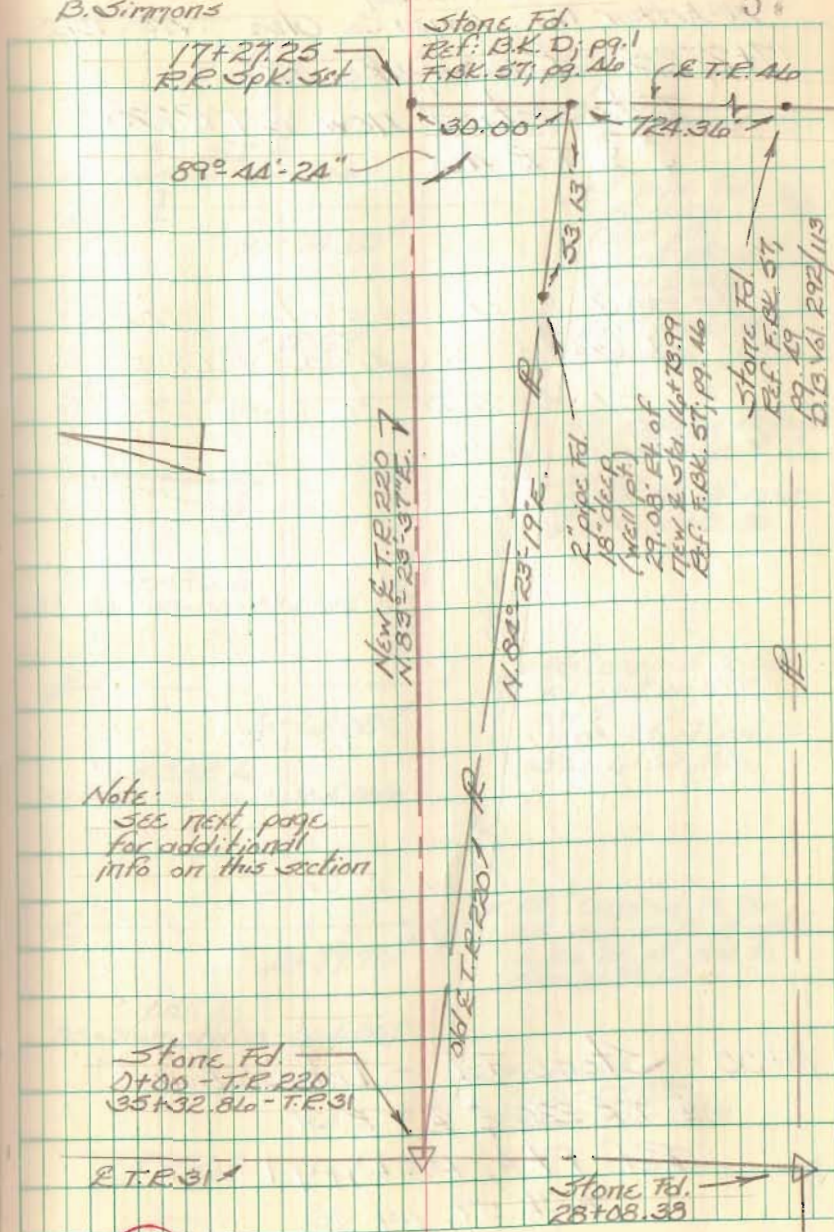 B. Simmons
Stone Fd.
Ref: B.K. D; pg. 1
F.BK. 57; pg. 46
17+27.25
R.R. Spk. Set
℄ T.R. 46
30.00'
724.36'
89°-44'-24"
53.13'
Stone Fd.
Ref. F.BK. 57,
pg. 49
D.B. Vol. 292/113
2" pipe Fd.
18" deep
(well pt.)
29.08' Rt. of
New ℄ Sta. 16+73.99
Ref: F.BK. 57, pg. 46
New ℄ T.R. 220
N. 83°-23'-37" E.
N. 84°-23'-19" E.
Note:
see next page
for additional
info on this section
Old ℄ T.R. 220
Stone Fd.
0+00 - T.R. 220
35+32.86 - T.R. 31
℄ T.R. 31
Stone Fd.
28+08.38